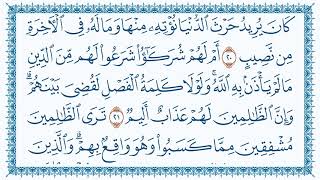 كَانَ يُرِيدُ حَرْثَ الدُّنْيَا نُؤْتِهِ مِنْهَا وَمَا لَهُ فِي الْآخِرَةِ
مِن نَّصِيبٍ ٢٠ أَمْ لَهُمْ شُرَكَٰٓؤُا۟ شَرَعُوا لَهُم مِّنَ الدِّينِ
مَا لَمْ يَأْذَن بِهِ اللَّهُ ۚ وَلَوْلَا كَلِمَةُ الْفَصْلِ لَقُضِيَ بَيْنَهُمْ ۗ
وَإِنَّ الظَّٰلِمِينَ لَهُمْ عَذَابٌ أَلِيمٌ ٢١ تَرَى الظَّٰلِمِينَ
مُشْفِقِينَ مِمَّا كَسَبُوا وَهُوَ وَاقِعٌۢ بِهِمْ ۗ وَالَّذِينَ